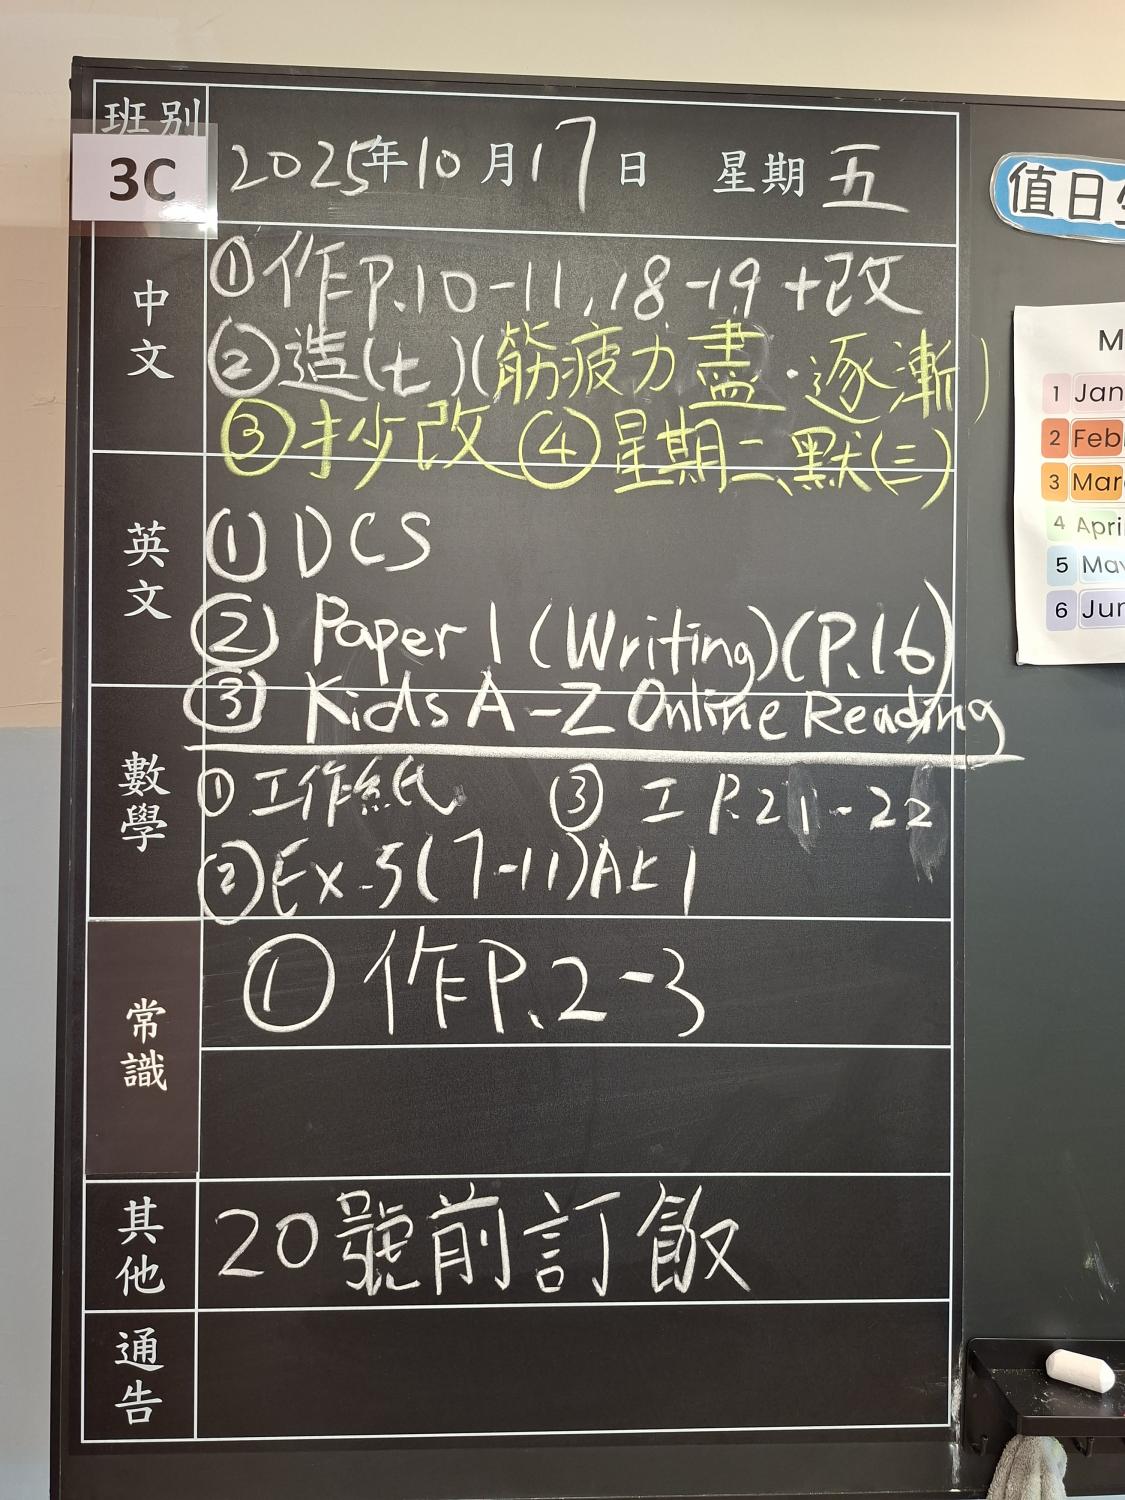 班別
3C
2025年10月17日 星期五
中文
①作P.10-11,18-19+改
②造(七)(筋疲力盡·逐漸)
③抄改 ④星期二、默(三)
英文
① DCS
② Paper 1 (Writing)(P.16)
③ Kids A-Z Online Reading
數學
①工作紙 ③ 工 P.21-22
②Ex.5(7-11)At 1
常識
① 作P.2-3
其他
20號前訂飯
通告
值日
M
1 Jan
2 Feb
3 Mar
4 April
5 May
6 Jun